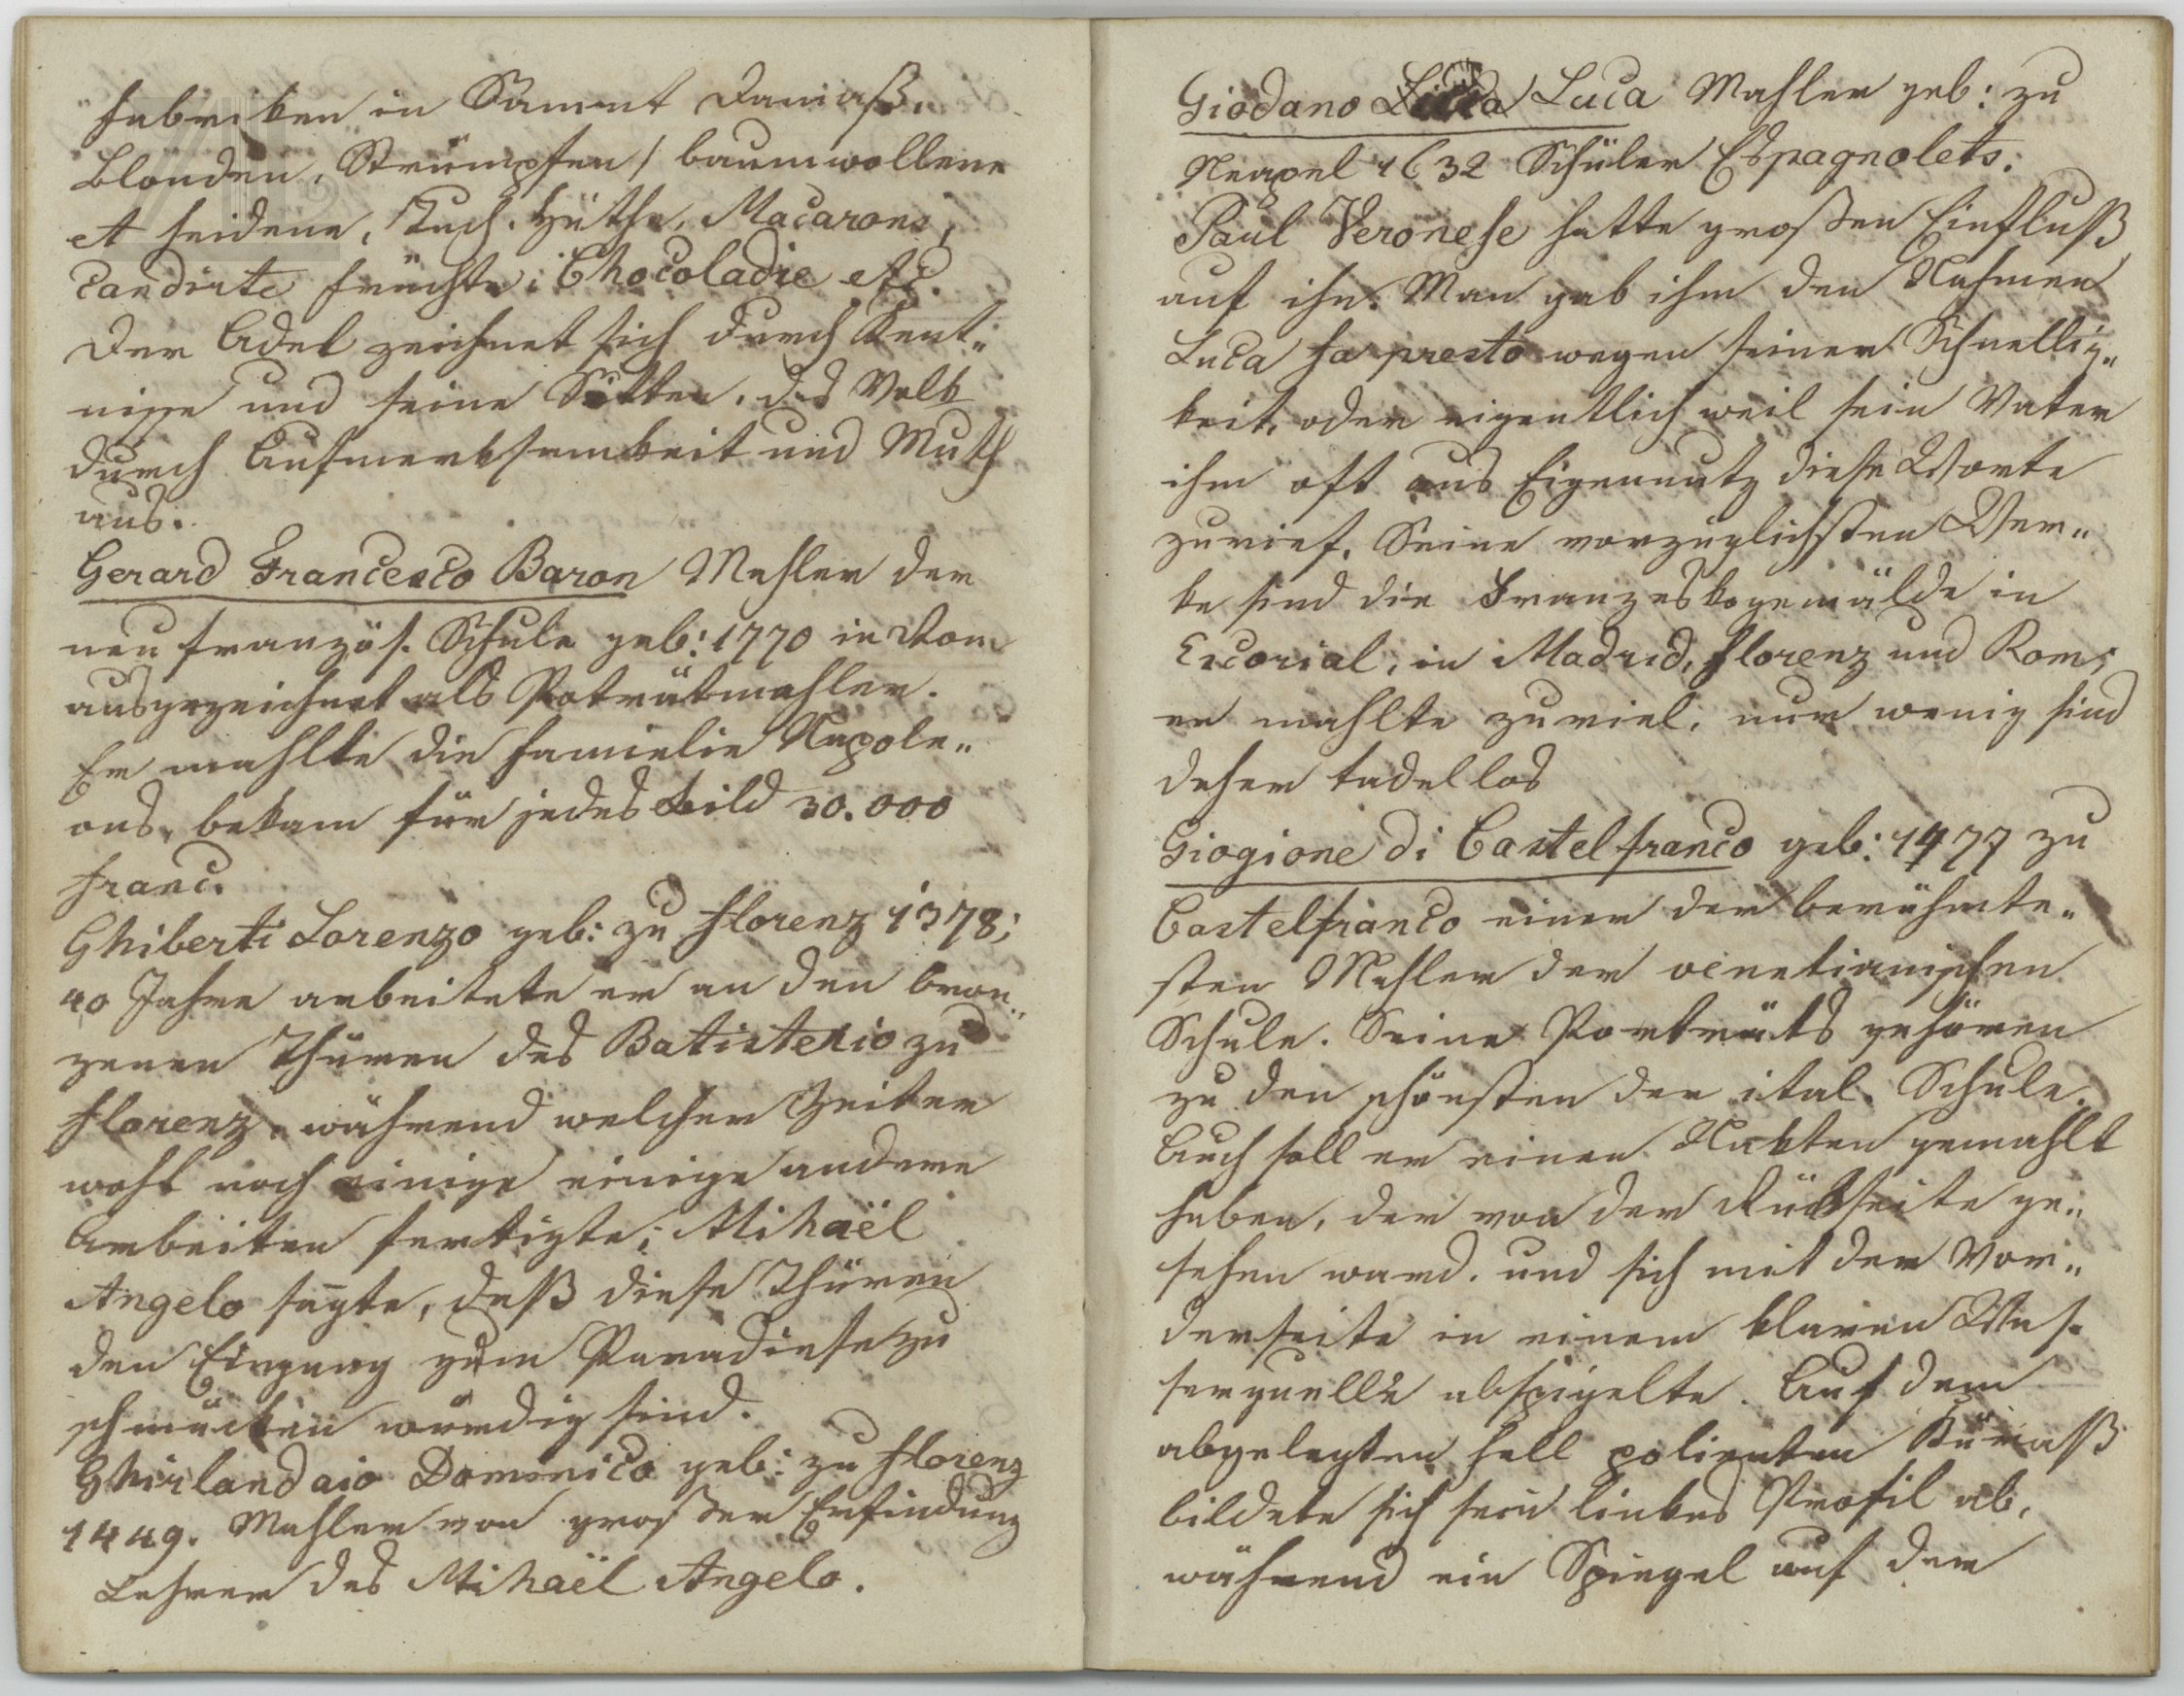 Fabriken in Sammt Damaß,
Blonden, Strümpfen / baumwollene
et seidene, Tuch. Hüthe, Macarons,
Candirte Früchte; Chocoladie etc.
Der Adel zeichnet sich durch Kent„
nisse und feine Sitten, das Volk
durch Aufmerksamkeit und Muth
aus.
Gerard Francesco Baron Mahler der
neu französ. Schule geb: 1770 in Rom
ausgezeichnet als Poträtmahler.
Er mahlte die Familie Napole„
ons, bekam für jedes Bild 30.000
Franc.
Ghiberti Lorenzo geb: zu Florenz 1378;
40 Jahre arbeitete er an den bron„
zenen Thüren des Batisterio zu
Florenz, während welcher Zeit er
wohl noch einige einige andere
Arbeiten fertigte; Mihaël
Angelo sagte, daß diese Thüren
den Eingang zum Paradiese zu
schmücken würdig sind.
Ghirlandaio Domenico geb: zu Florenz
1449. Mahler von großer Erfindung
Lehrer des Mihaël Angelo.
Giodano Luca Mahler geb: zu
Neapel 1632 Schüler Espagnolets.
Paul Veronese hatte großen Einfluß
auf ihn. Man gab ihm den Nahmen
Luca fa presto wegen seiner Schnellig„
keit, oder eigentlich weil sein Vater
ihm oft aus Eigennutz diese Worte
zurief. Seine vorzüglichsten Wer„
ke sind die Franzeskogemälde in
Escorial, in Madrid, Florenz und Rom;
er mahlte zuviel, nur wenig sind
daher tadellos
Giogione di Castelfranco geb: 1477 zu
Castelfranco einer der berühmte„
sten Mahler der venetianischen
Schule. Seine Porträts gehören
zu den schönsten der ital. Schule.
Auch soll er einen Nakten gemahlt
haben, der von der Rückseite ge„
sehen ward. und sich mit der Vor„
derseite in einem klaren Was„
serquelle abspigelte. Auf dem
abgelegten hell polierten Küraß
bildete sich sein linkes Profil ab,
während ein Spiegel auf der